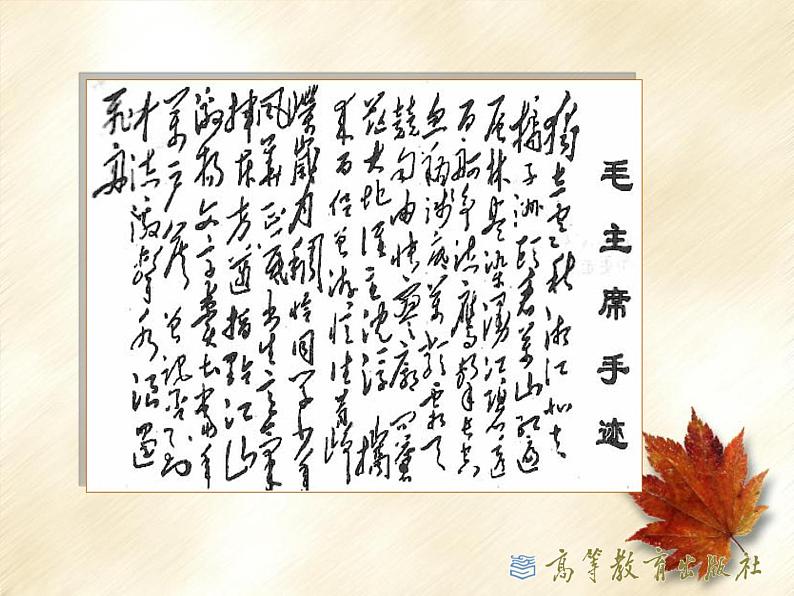 毛主席手迹
独立寒秋湘江北去
橘子洲头看万山红遍
层林尽染漫江碧透
百舸争流鹰击长空
鱼翔浅底万类霜天
竞自由怅寥廓问苍
茫大地谁主沉浮携
来百侣曾游忆往昔峥
嵘岁月稠恰同学少年
风华正茂书生意气
挥斥方遒指点江山
激扬文字粪土当年
万户侯曾记否到
中流击水浪遏
飞舟
高等教育出版社